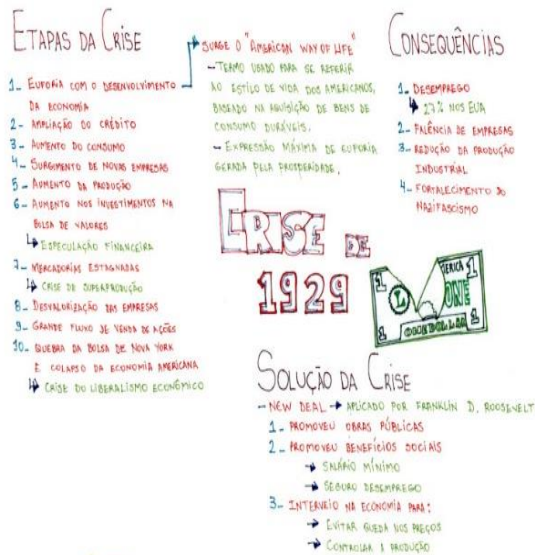 ETAPAS DA CRISE
1- EUFORIA COM O DESENVOLVIMENTO
DA ECONOMIA
2- AMPLIAÇÃO DO CRÉDITO
3- AUMENTO DO CONSUMO
4- SURGIMENTO DE NOVAS EMPRESAS
5- AUMENTO DA PRODUÇÃO
6- AUMENTO NOS INVESTIMENTOS NA
BOLSA DE VALORES
↳ ESPECULAÇÃO FINANCEIRA
7- MERCADORIAS ESTAGNADAS
↳ CRISE DE SUPERPRODUÇÃO
8- DESVALORIZAÇÃO DAS EMPRESAS
9- GRANDE FLUXO DE VENDA DE AÇÕES
10- QUEBRA DA BOLSA DE NOVA YORK
E COLAPSO DA ECONOMIA AMERICANA
↳ CRISE DO LIBERALISMO ECONÔMICO
SURGE O "AMERICAN WAY OF LIFE"
- TERMO USADO PARA SE REFERIR
AO ESTILO DE VIDA DOS AMERICANOS,
BASEADO NA AQUISIÇÃO DE BENS DE
CONSUMO DURÁVEIS.
- EXPRESSÃO MÁXIMA DE EUFORIA
GERADA PELA PROSPERIDADE.
CONSEQUÊNCIAS
1- DESEMPREGO
↳ 27% NOS EUA
2- FALÊNCIA DE EMPRESAS
3- REDUÇÃO DA PRODUÇÃO
INDUSTRIAL
4- FORTALECIMENTO DO
NAZIFASCISMO
CRISE DE
1929
1 ERICA 1
L ONE
1 ONE DOLLAR 1
SOLUÇÃO DA CRISE
- NEW DEAL → APLICADO POR FRANKLIN D. ROOSEVELT
1- PROMOVEU OBRAS PÚBLICAS
2- PROMOVEU BENEFÍCIOS SOCIAIS
→ SALÁRIO MÍNIMO
→ SEGURO DESEMPREGO
3- INTERVEIO NA ECONOMIA PARA:
→ EVITAR QUEDA NOS PREÇOS
→ CONTROLAR A PRODUÇÃO